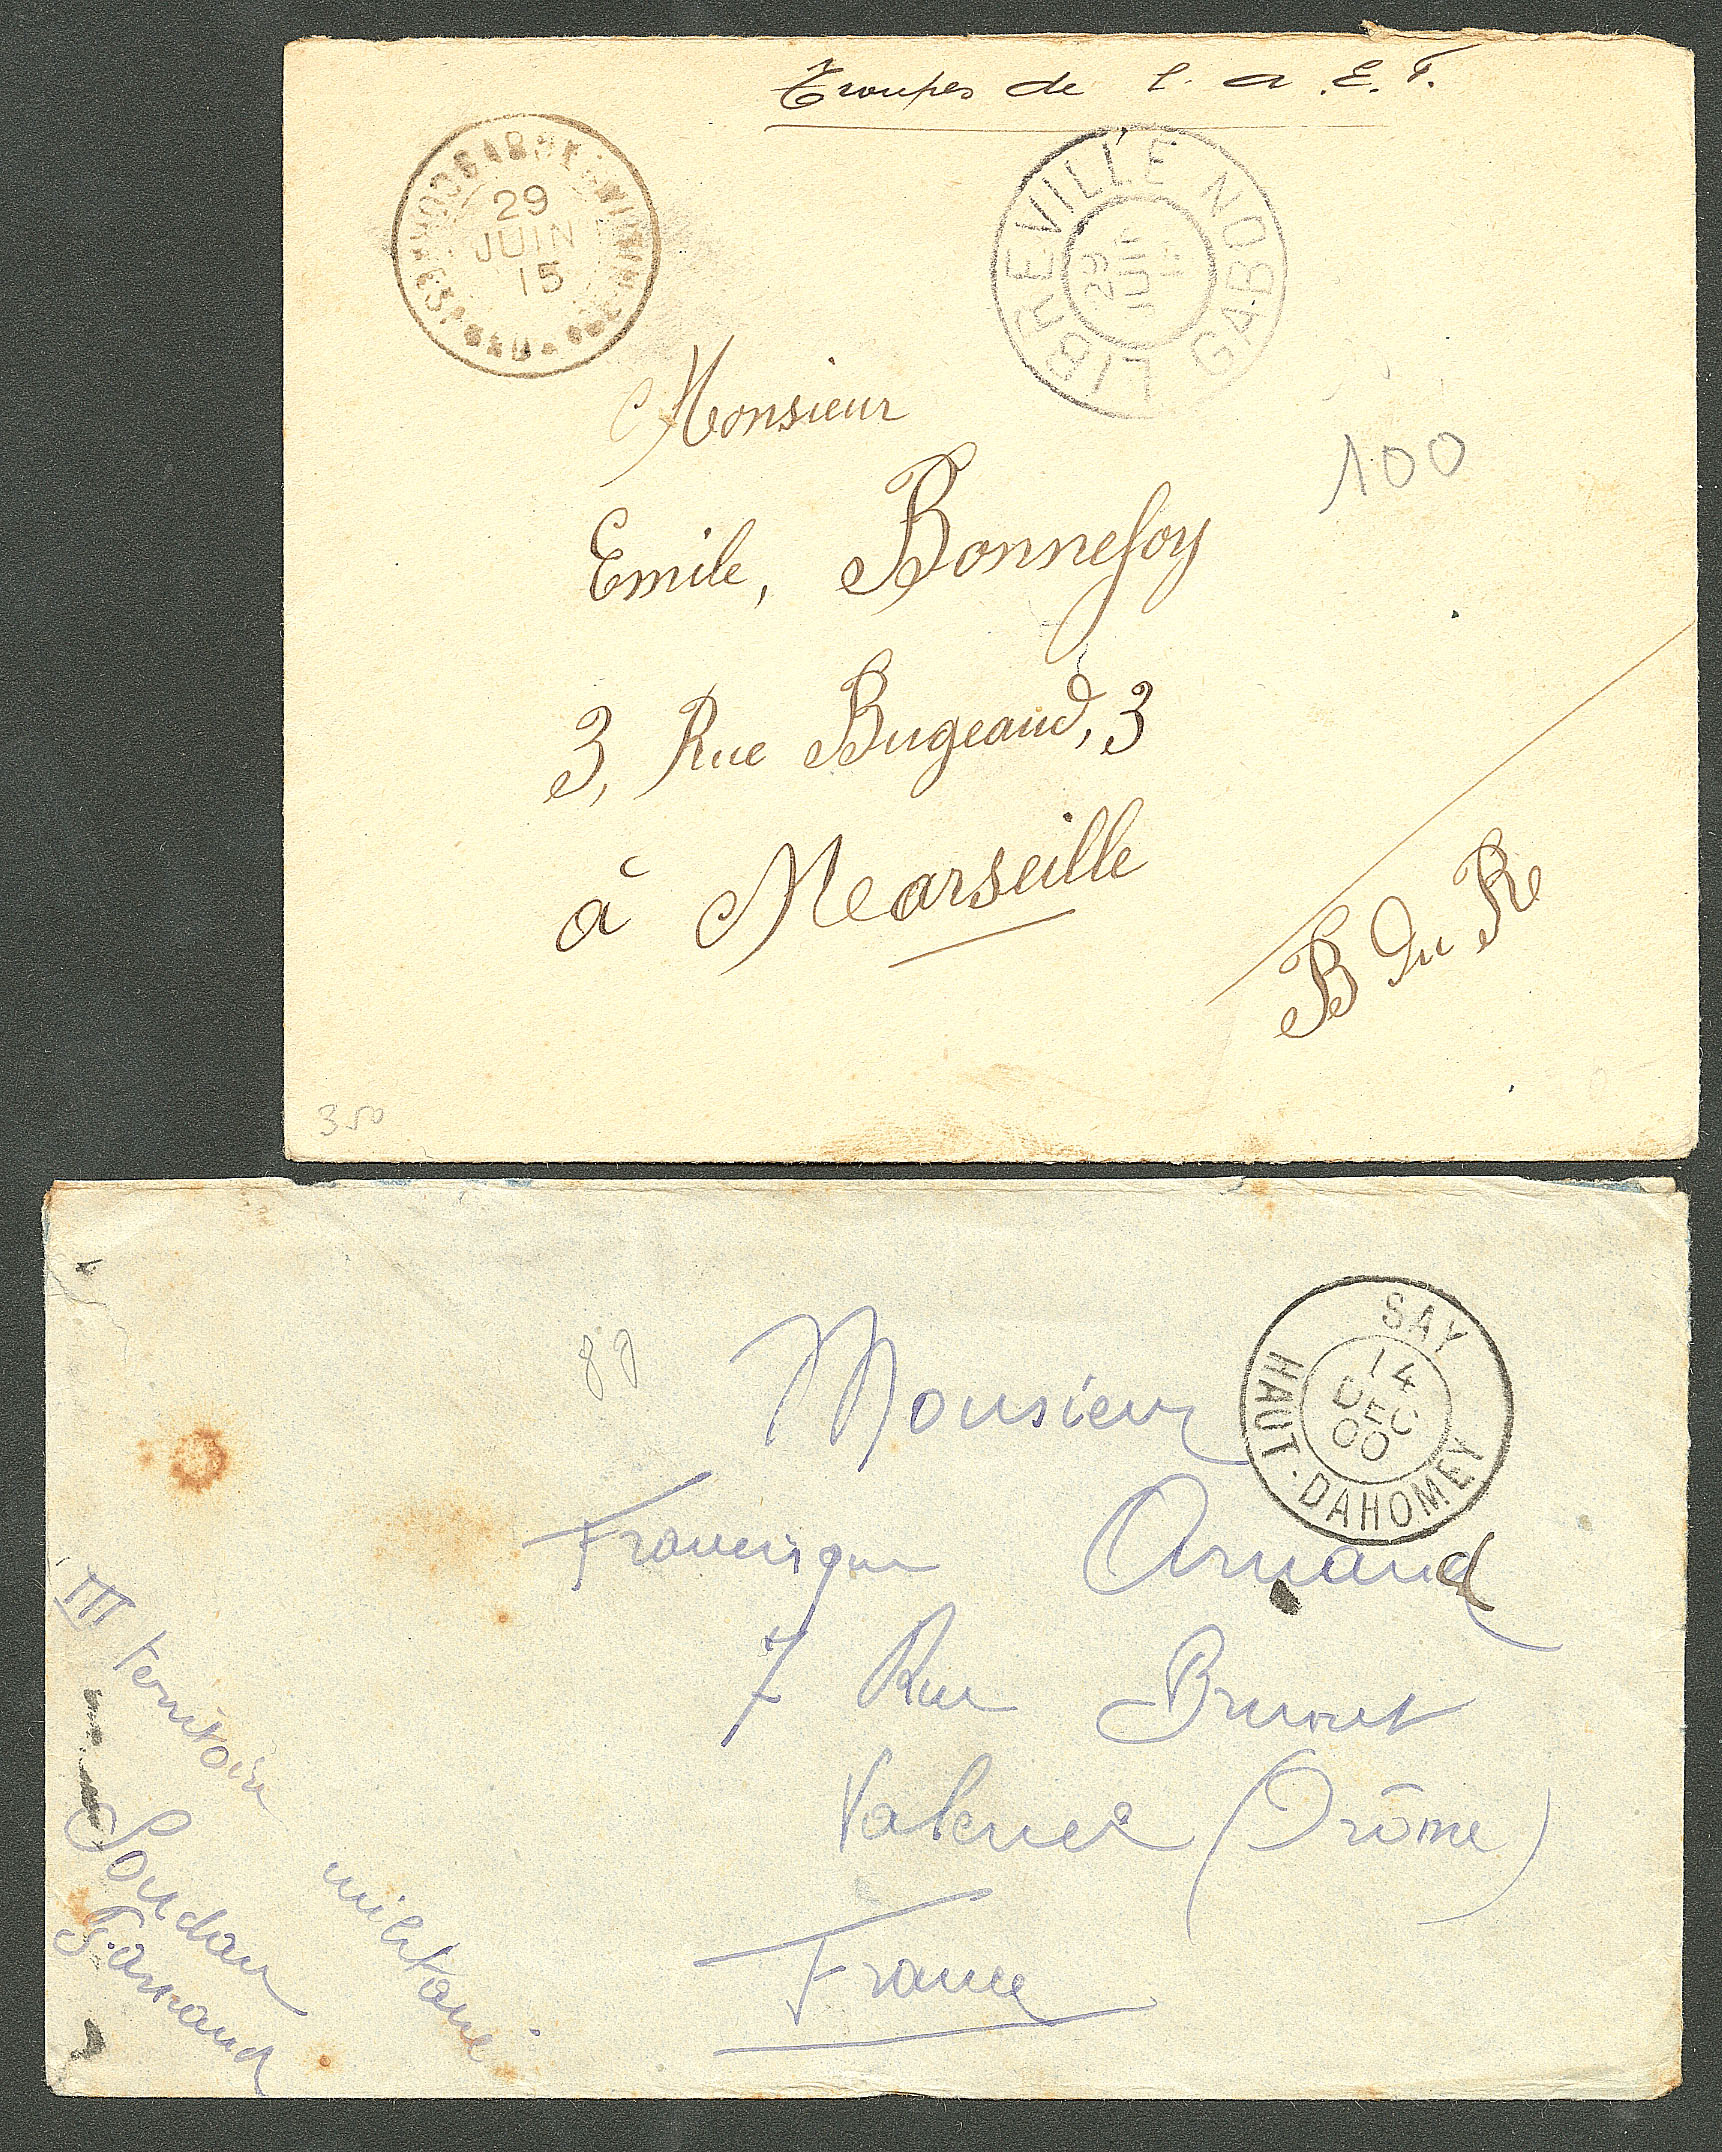 Troupes de l. a. E. F.
29
JUIN
15
LIBREVILLE
GABON
29
JUIN
Monsieur
100
Emile, Bonnefoy
3, Rue Bugeaud, 3
à Marseille
B du R
350
SAY
14
DEC
00
HAUT-DAHOMEY
Monsieur
Francisque Arnaud
7 Rue Brunet
Valence (Drôme)
France
III territoire militaire
Soudan
F. Arnaud